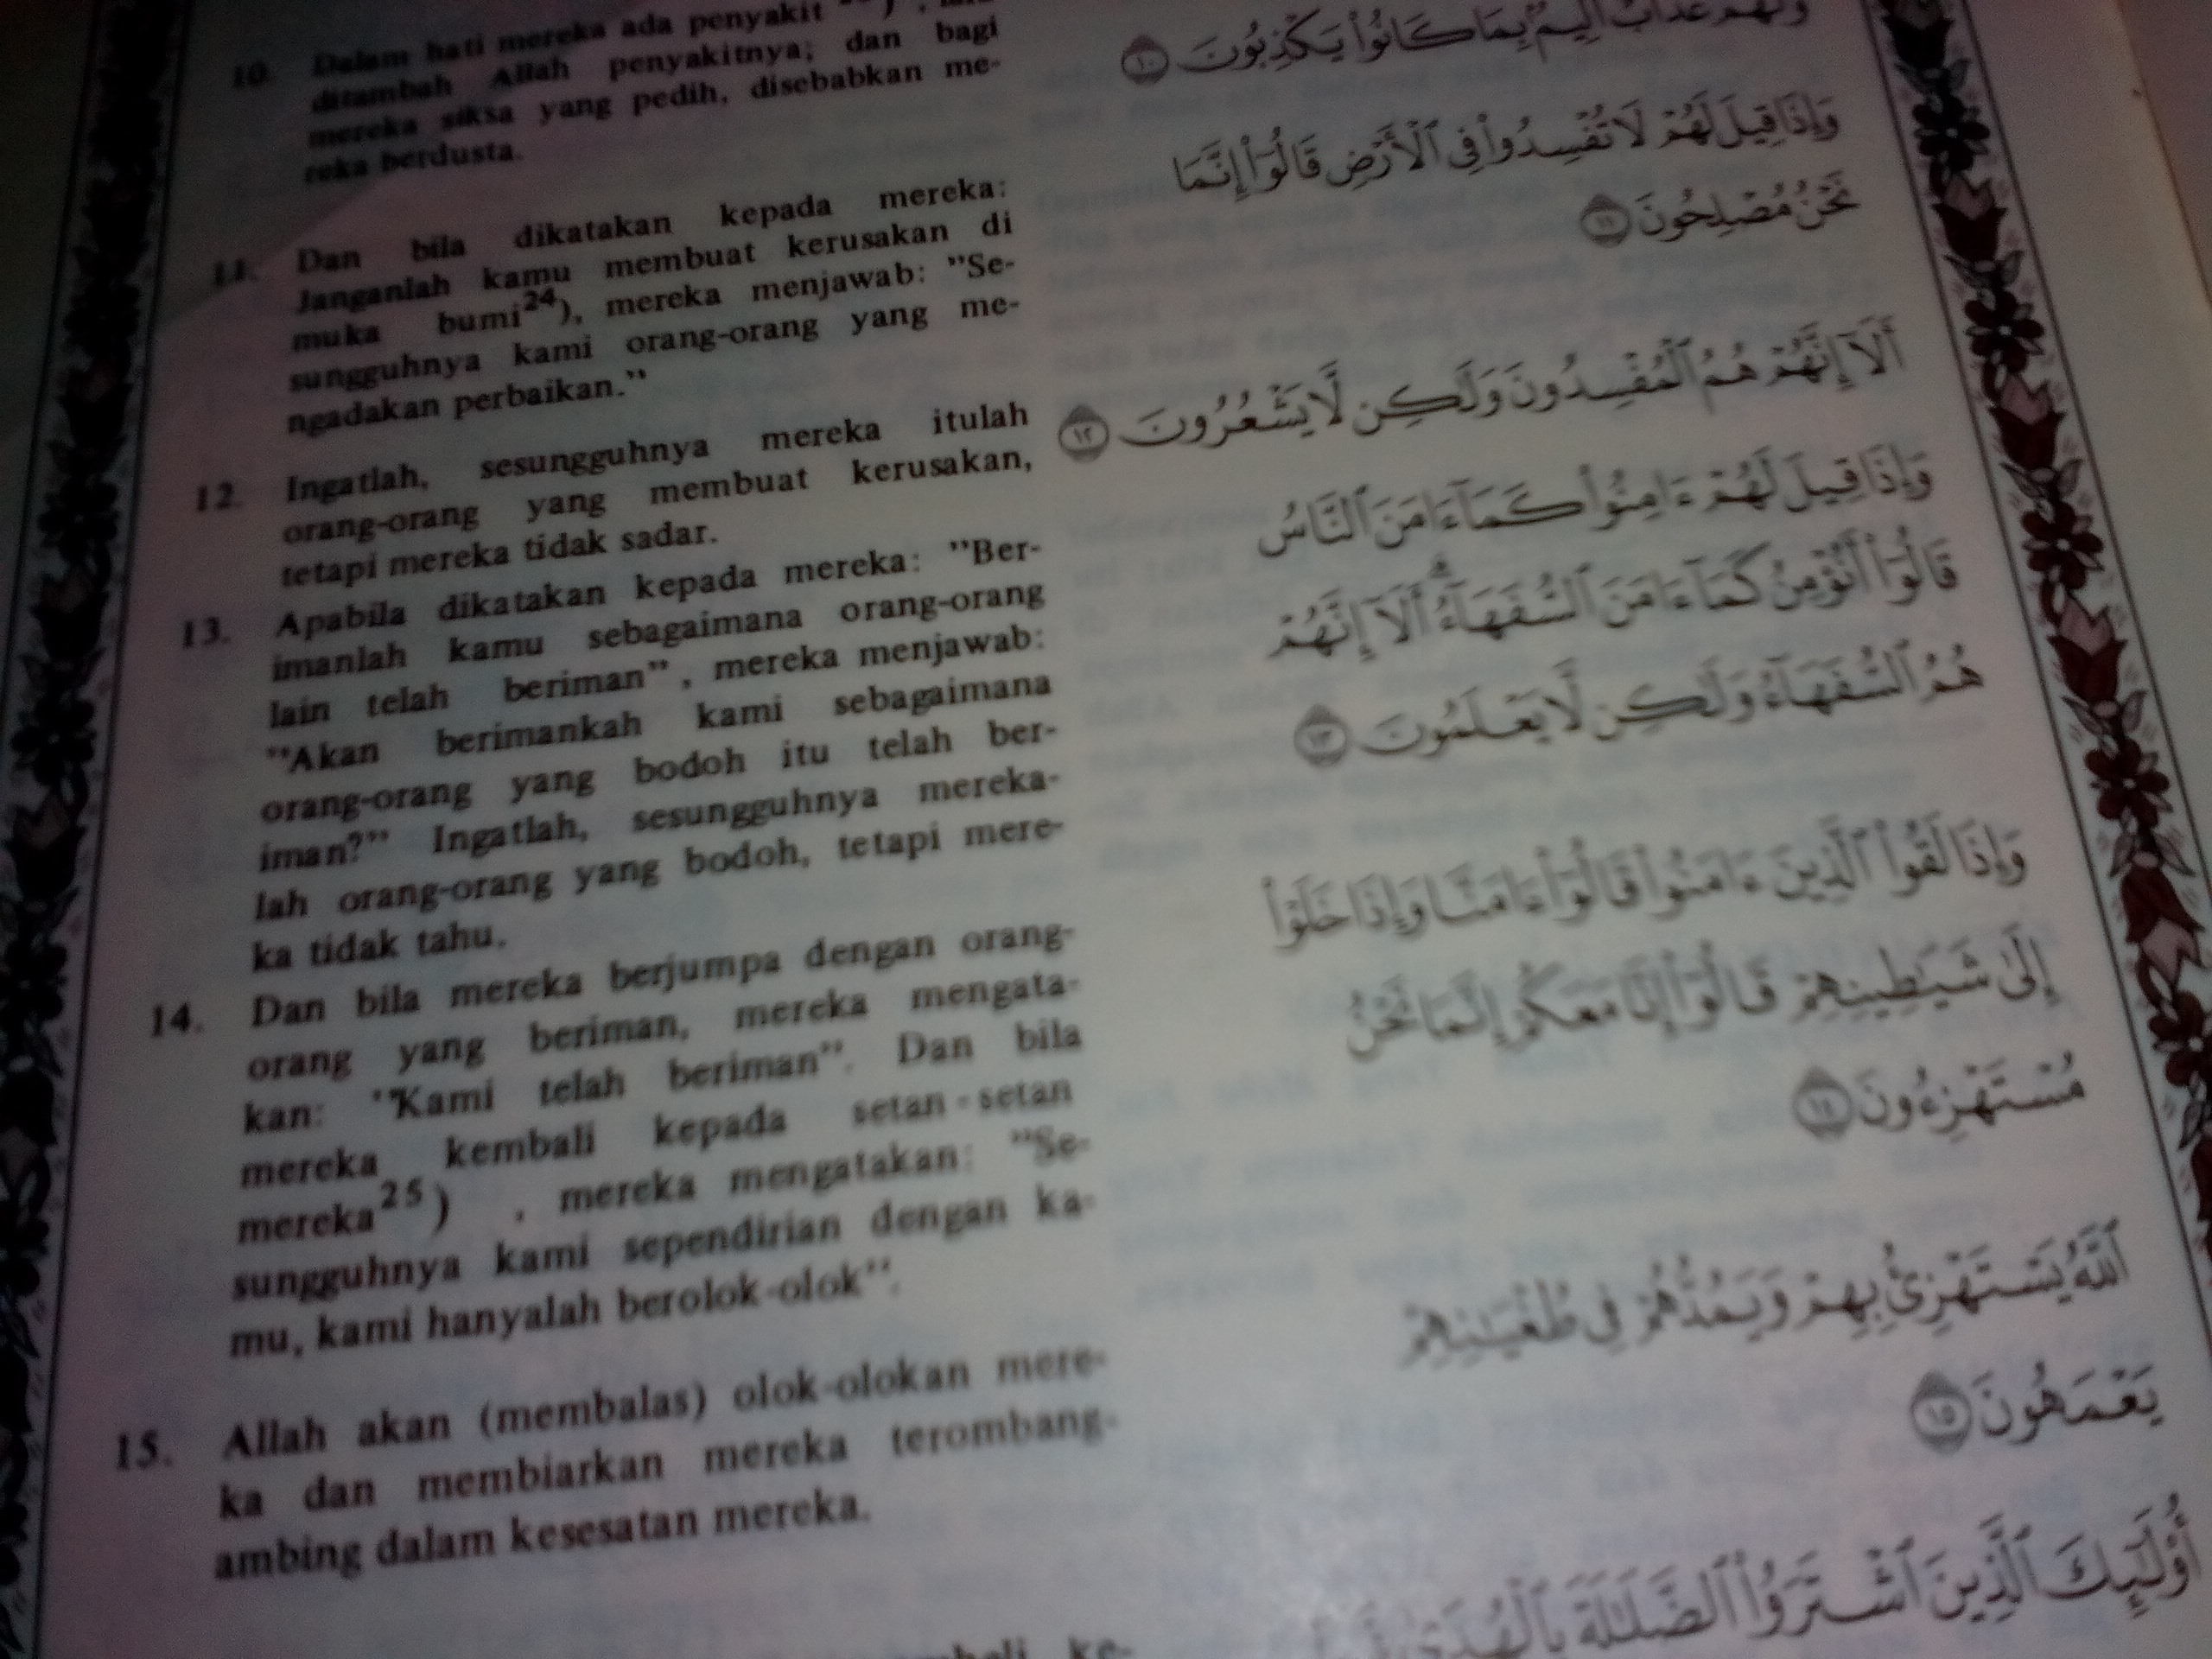 10. Dalam hati mereka ada penyakit
ditambah Allah penyakitnya; dan bagi
mereka siksa yang pedih, disebabkan me-
reka berdusta.
11. Dan bila dikatakan kepada mereka:
Janganlah kamu membuat kerusakan di
muka bumi24), mereka menjawab: ''Se-
sungguhnya kami orang-orang yang me-
ngadakan perbaikan.''
12. Ingatlah, sesungguhnya mereka itulah
orang-orang yang membuat kerusakan,
tetapi mereka tidak sadar.
13. Apabila dikatakan kepada mereka: ''Ber-
imanlah kamu sebagaimana orang-orang
lain telah beriman'', mereka menjawab:
''Akan berimankah kami sebagaimana
orang-orang yang bodoh itu telah ber-
iman?'' Ingatlah, sesungguhnya mereka-
lah orang-orang yang bodoh, tetapi mere-
ka tidak tahu.
14. Dan bila mereka berjumpa dengan orang-
orang yang beriman, mereka mengata-
kan: ''Kami telah beriman''. Dan bila
mereka kembali kepada setan-setan
mereka25) , mereka mengatakan: ''Se-
sungguhnya kami sependirian dengan ka-
mu, kami hanyalah berolok-olok''.
15. Allah akan (membalas) olok-olokan mere-
ka dan membiarkan mereka terombang-
ambing dalam kesesatan mereka.
ke-
وَلَهُمْ عَذَابٌ أَلِيمٌۢ بِمَا كَانُوا۟ يَكْذِبُونَ ١٠
وَإِذَا قِيلَ لَهُمْ لَا تُفْسِدُوا۟ فِى ٱلْأَرْضِ قَالُوٓا۟ إِنَّمَا
نَحْنُ مُصْلِحُونَ ١١
أَلَآ إِنَّهُمْ هُمُ ٱلْمُفْسِدُونَ وَلَٰكِن لَّا يَشْعُرُونَ ١٢
وَإِذَا قِيلَ لَهُمْ ءَامِنُوا۟ كَمَآ ءَامَنَ ٱلنَّاسُ
قَالُوٓا۟ أَنُؤْمِنُ كَمَآ ءَامَنَ ٱلسُّفَهَآءُ ۗ أَلَآ إِنَّهُمْ
هُمُ ٱلسُّفَهَآءُ وَلَٰكِن لَّا يَعْلَمُونَ ١٣
وَإِذَا لَقُوا۟ ٱلَّذِينَ ءَامَنُوا۟ قَالُوٓا۟ ءَامَنَّا وَإِذَا خَلَوْا۟
إِلَىٰ شَيَٰطِينِهِمْ قَالُوٓا۟ إِنَّا مَعَكُمْ إِنَّمَا نَحْنُ
مُسْتَهْزِءُونَ ١٤
ٱللَّهُ يَسْتَهْزِئُ بِهِمْ وَيَمُدُّهُمْ فِى طُغْيَٰنِهِمْ
يَعْمَهُونَ ١٥
أُو۟لَٰٓئِكَ ٱلَّذِينَ ٱشْتَرَوُا۟ ٱلضَّلَٰلَةَ بِٱلْهُدَىٰ